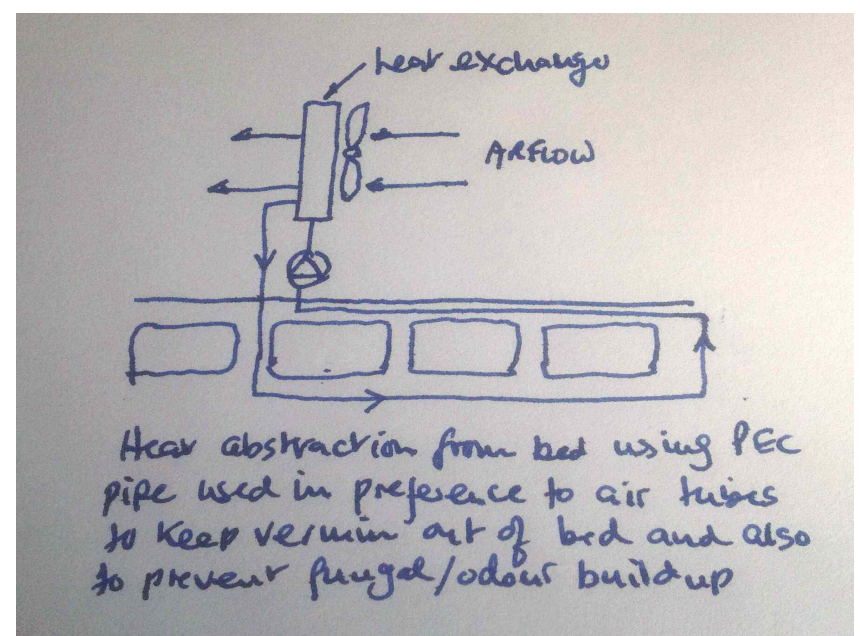 heat exchange
AIRFLOW
Heat abstraction from bed using PEC
pipe used in preference to air tubes
to keep vermin out of bed and also
to prevent fungal/odour buildup